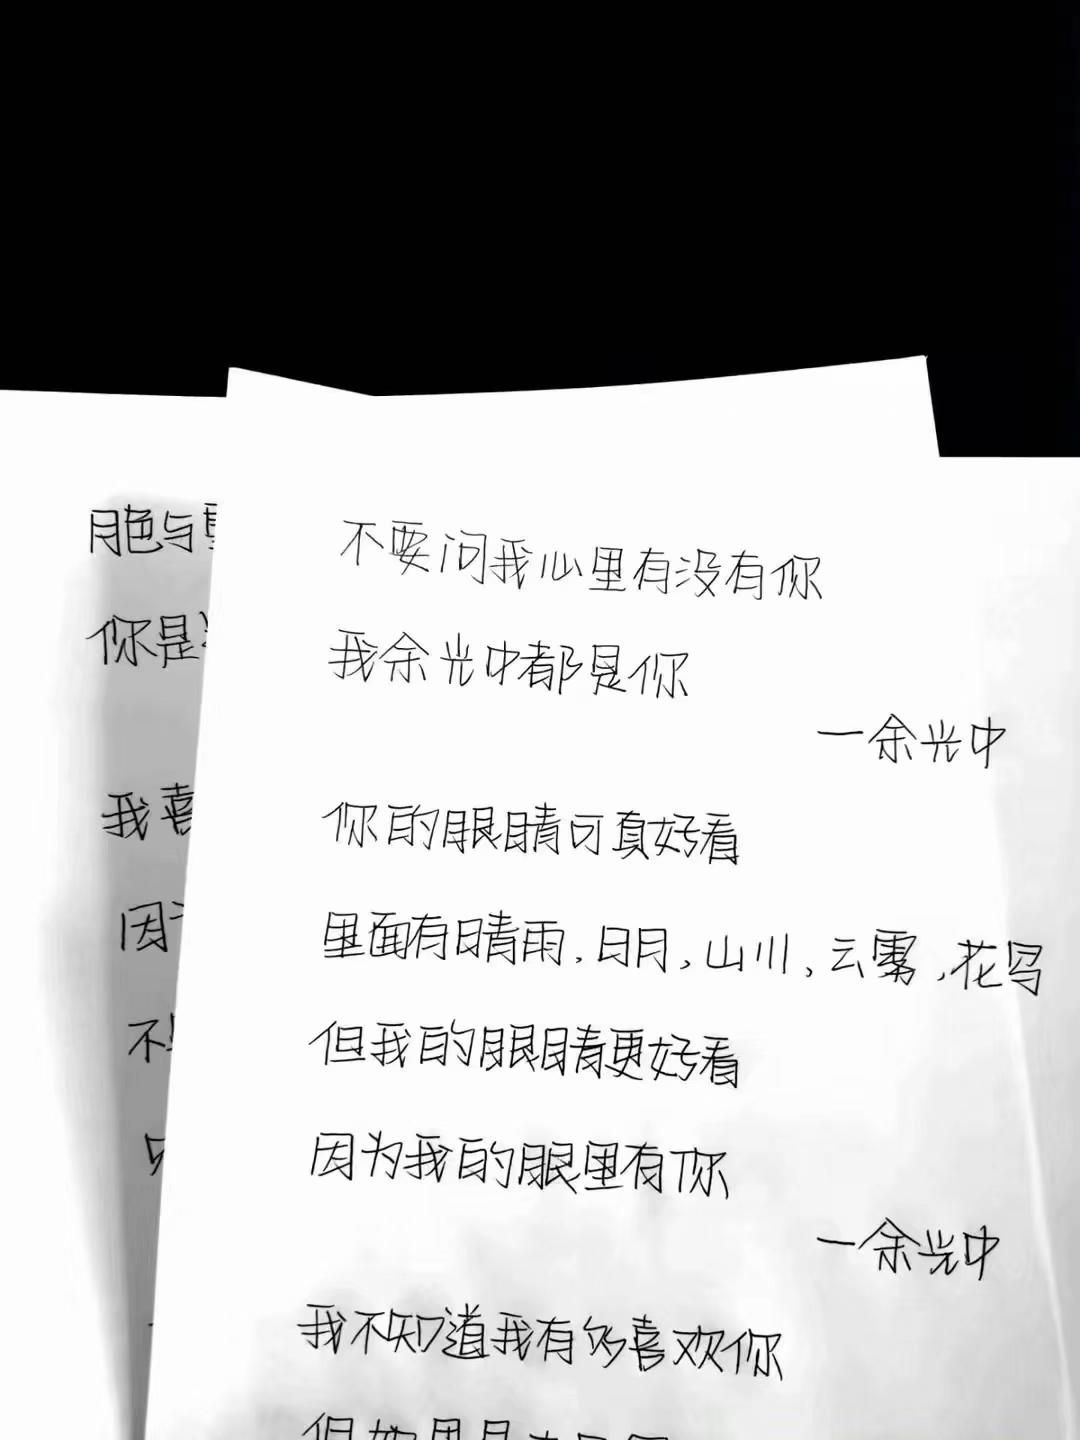 月色与
你是
我喜
因
不
不要问我心里有没有你
我余光中都是你
一余光中
你的眼睛可真好看
里面有晴雨,日月,山川,云雾,花鸟
但我的眼睛更好看
因为我的眼里有你
一余光中
我不知道我有多喜欢你
但如果是